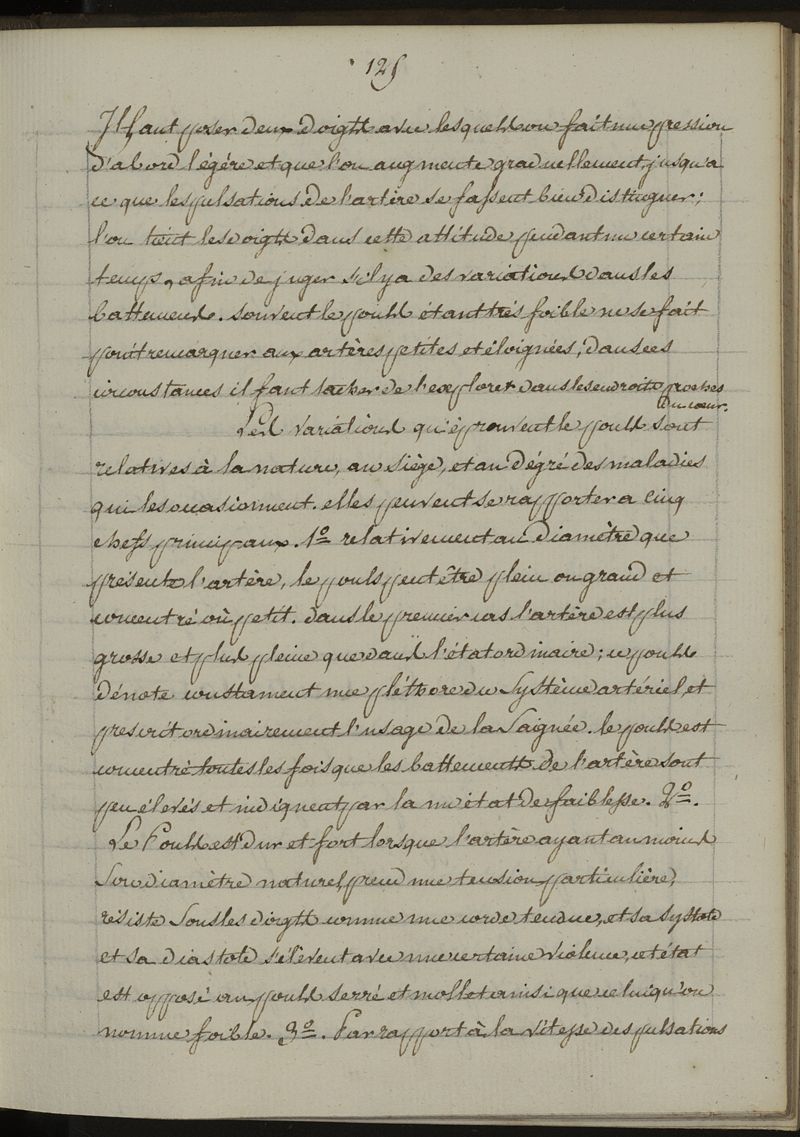 125
Il faut poser deux doigts avec lesquels on fait une pression
d'abord légére et que l'on augmente graduellement, jusqu'a
ce que les pulsations de l'artère se fassent bien distinguer;
l'on tient les doigts dans cette attitude pendant un certain
temps, afin de juger s'il y a des variations dans les
battemens. souvent le pouls étant très foible ne se fait
point remarquer aux artères petites et éloignées, dans ces
circonstances il faut tacher de l'explorer dans les endroits proches
du cœur.
Les variations qu'éprouvent le pouls sont
relatives à la nature, au siège, et au dégré des maladies
qui les occasionnent. elles peuvent se rapporter a cinq
chefs principaux. 1º relativement au diamètre que
présente l'artère, le pouls peut être plein ou grand et
concentré où petit. dans le premier cas l'artère est plus
grosse et plus pleine que dans l'état ordinaire; ce pouls
dénote constament une pléthore du Système artériel, et
prescrit ordinairement l'usage de la Saignée. le pouls est
concentré toutes les fois que les battements de l'artère sont
peu élevés et indiquent par la un état de faiblesse. 2º.
Le Pouls est dur et fort lorsque l'artère ayant au moins
Son diamètre naturel, prend une tension particulière,
résiste Sous les doigts comme une corde tendue, et sa systole
et sa diastole s'élèvent avec une certaine violence, cet état
est opposé au pouls serré et mollet ainsi que celui qu'on
nomme foible. 3º. Par rapport à la vitesse des pulsations